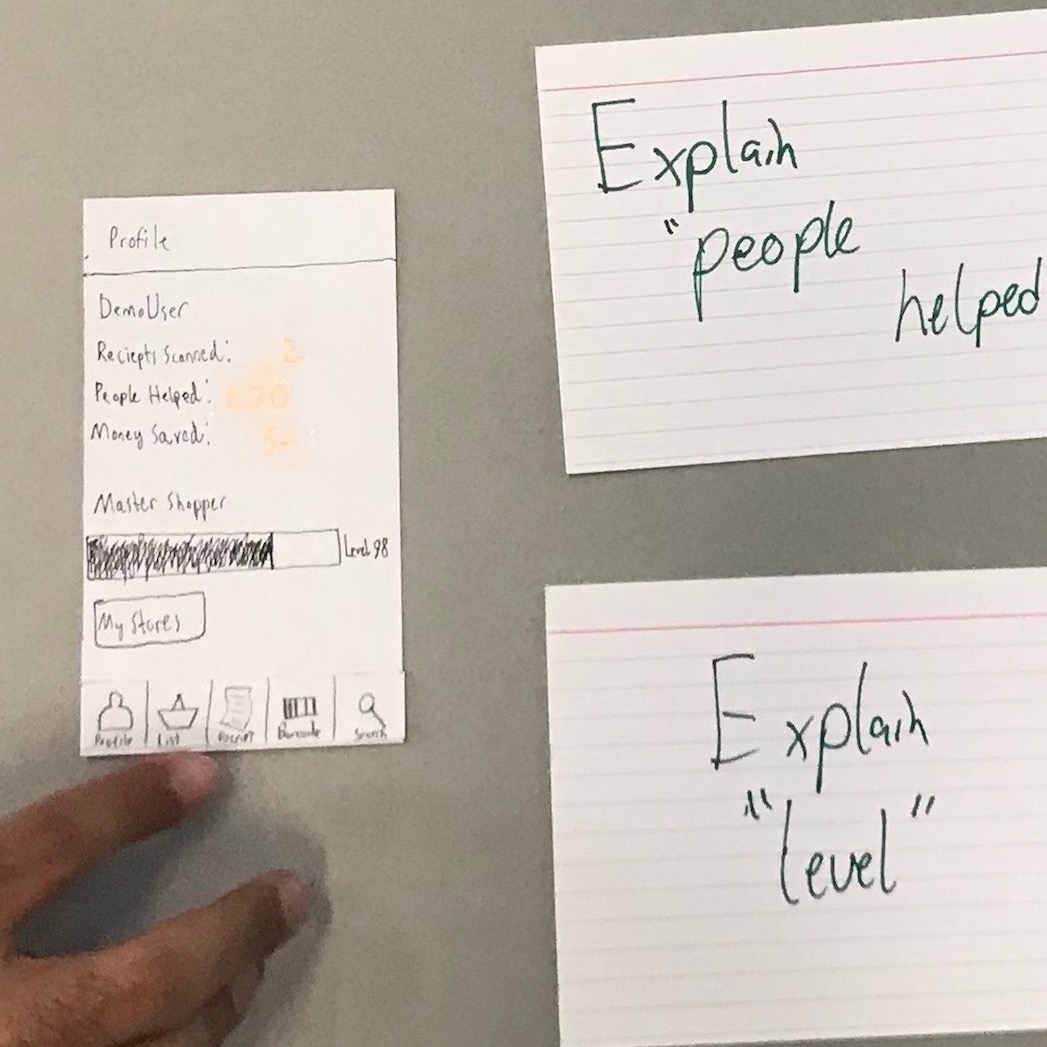 Profile
DemoUser
Reciepts Scanned:
People Helped:
Money Saved:
Master Shopper
Level 98
My Stores
Profile
List
Barcode
Search
Explain
"people
helped
Explain
"level"